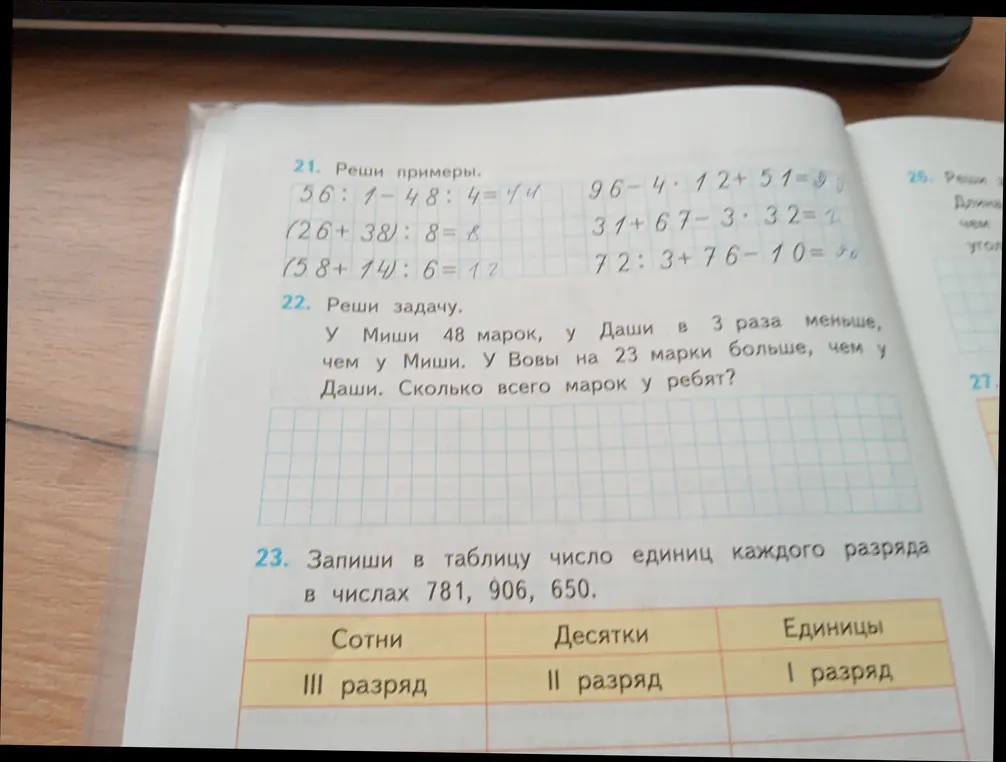 21. Реши примеры.
56 : 1 − 48 : 4 = 44
(26 + 38) : 8 = 8
(58 + 14) : 6 = 12
96 − 4 · 12 + 51 =
31 + 67 − 3 · 32 = 2
72 : 3 + 76 − 10 =
22. Реши задачу.
У Миши 48 марок, у Даши в 3 раза меньше,
чем у Миши. У Вовы на 23 марки больше, чем у
Даши. Сколько всего марок у ребят?
23. Запиши в таблицу число единиц каждого разряда
в числах 781, 906, 650.
Сотни Десятки Единицы
III разряд II разряд I разряд
26. Реши
Длина
чем
угол
27.